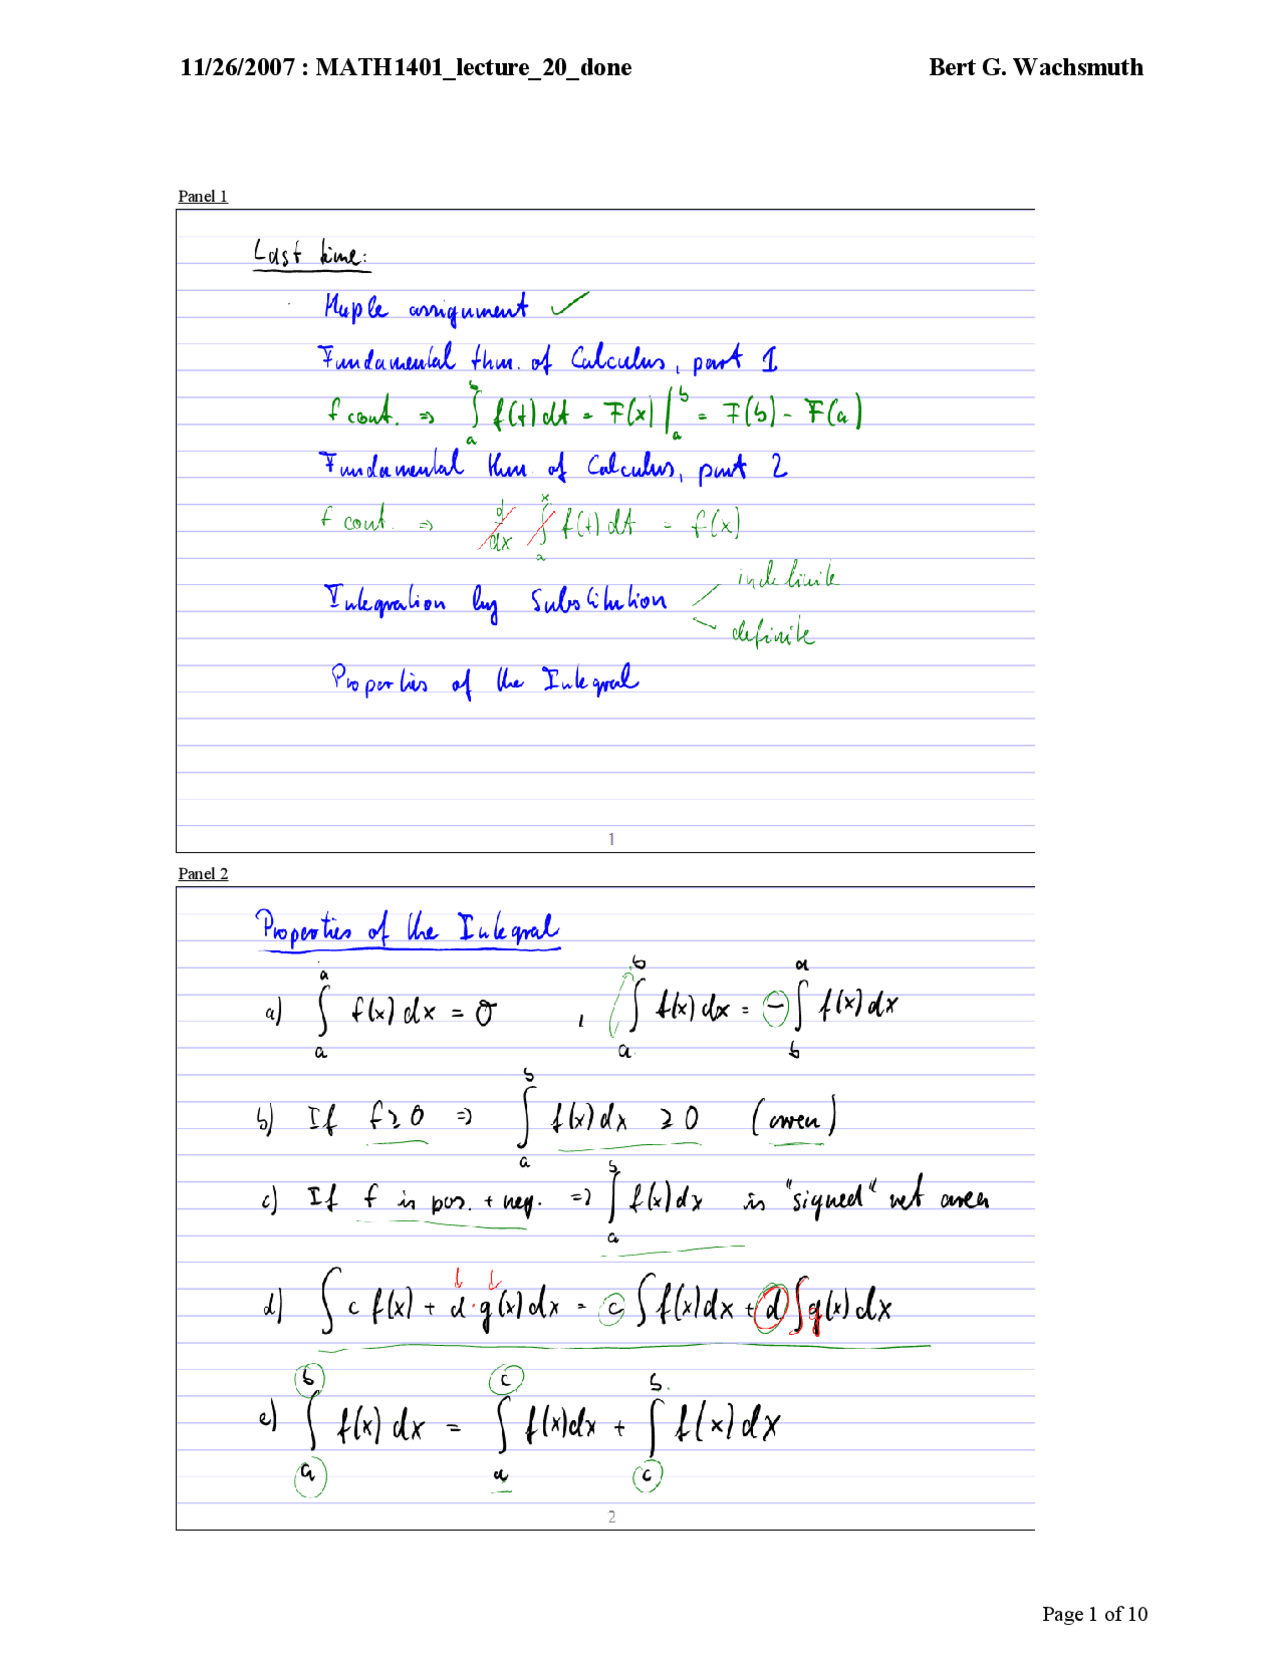 11/26/2007 : MATH1401_lecture_20_done Bert G. Wachsmuth
Panel 1
Last time:
Maple assignment ✓
Fundamental thm. of Calculus, part 1
f cont. => ∫_a^b f(t) dt = F(x) |_a^b = F(b) - F(a)
Fundamental thm of Calculus, part 2
f cont. => d/dx ∫_a^x f(t) dt = f(x)
indefinite
Integration by Substitution
definite
Properties of the Integral
1
Panel 2
Properties of the Integral
a) ∫_a^a f(x) dx = 0 , ∫_a^b f(x) dx = - ∫_b^a f(x) dx
b) If f ≥ 0 => ∫_a^b f(x) dx ≥ 0 (area)
c) If f is pos. + neg. => ∫_a^b f(x) dx is "signed" net area
d) ∫ c f(x) + d · g(x) dx = c ∫ f(x) dx + d ∫ g(x) dx
e) ∫_a^b f(x) dx = ∫_a^c f(x) dx + ∫_c^b f(x) dx
2
Page 1 of 10